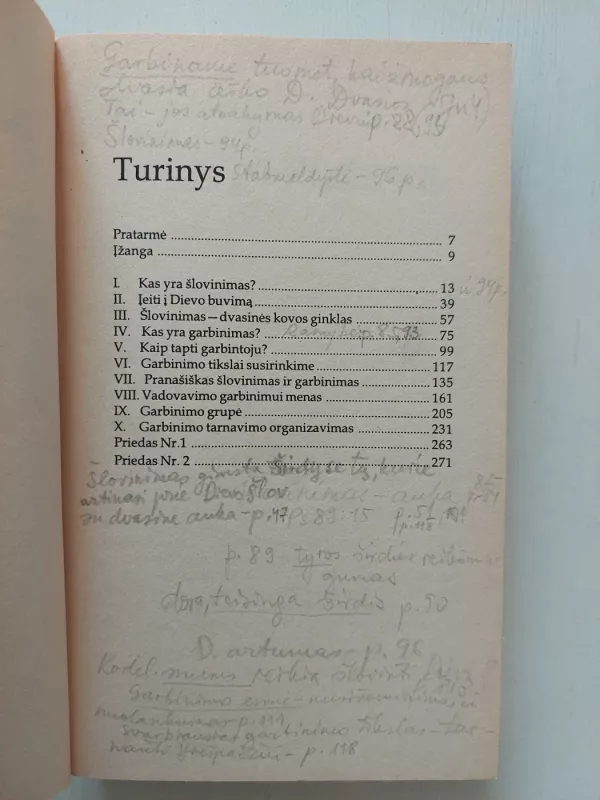 Garbiname tuomet, kai žmogaus
dvasia D. Dvasios
Tai - jos p. 22, 94
Šlovinimas - 94p.
Turinys - 96 p.
Pratarmė ........ 7
Įžanga ........ 9
I. Kas yra šlovinimas? ........ 13 ir 94p.
II. Įeiti į Dievo buvimą ........ 39
III. Šlovinimas—dvasinės kovos ginklas ........ 57
IV. Kas yra garbinimas? ........ 75
V. Kaip tapti garbintoju? ........ 99
VI. Garbinimo tikslai susirinkime ........ 117
VII. Pranašiškas šlovinimas ir garbinimas ........ 135
VIII. Vadovavimo garbinimui menas ........ 161
IX. Garbinimo grupė ........ 205
X. Garbinimo tarnavimo organizavimas ........ 231
Priedas Nr.1 ........ 263
Priedas Nr. 2 ........ 271
Šlovinimas gimsta širdyse tų, kurie
artinasi prie Dievo Šlovinimas - auka
su dvasine auka - p. 47 Ps 89:15
p. 89 tyros širdies
dora, teisinga širdis p. 90
D. artumas - p. 96
Kodėl mums reikia šlovinti
Garbinimo esmė -
p. 111
svarbiausias garbinimo tikslas - tar-
nauti Viešpačiui - p. 118